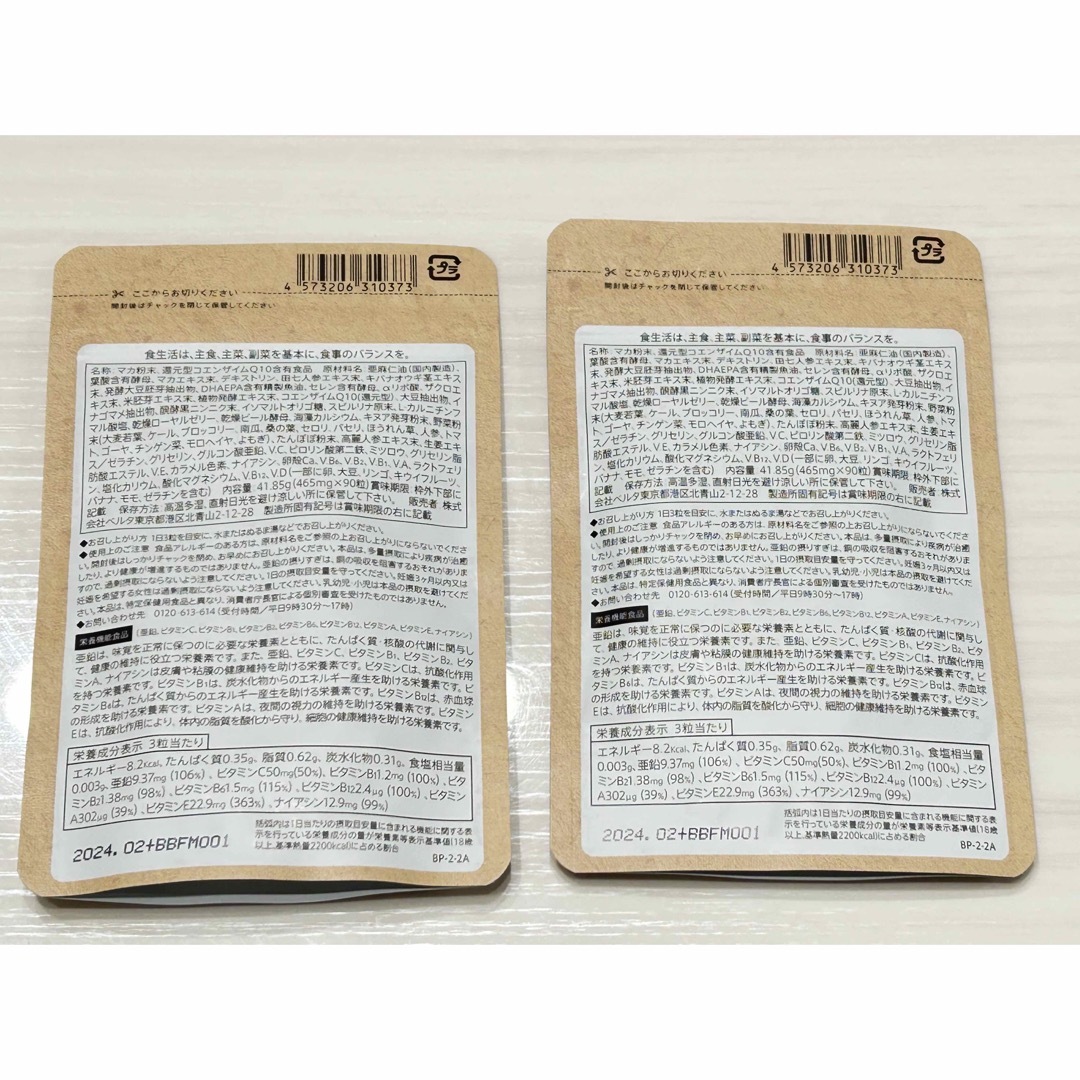 ここからお切りください
開封後はチャックを閉じて保管してください
4 573206 310373
プラ
食生活は、主食、主菜、副菜を基本に、食事のバランスを。
名称 マカ粉末、還元型コエンザイムQ10含有食品 原材料名 亜麻仁油(国内製造)、
葉酸含有酵母、マカエキス末、デキストリン、田七人参エキス末、キバナオウギ茎エキス
末、発酵大豆胚芽抽出物、DHAEPA含有精製魚油、セレン含有酵母、αリポ酸、ザクロエ
キス末、米胚芽エキス末、植物発酵エキス末、コエンザイムQ10(還元型)、大豆抽出物、イ
ナゴマメ抽出物、醗酵黒ニンニク末、イソマルトオリゴ糖、スピルリナ原末、L-カルニチンフ
マル酸塩、乾燥ローヤルゼリー、乾燥ビール酵母、海藻カルシウム、キヌア発芽粉末、野菜粉
末(大麦若葉、ケール、ブロッコリー、南瓜、桑の葉、セロリ、パセリ、ほうれん草、人参、トマ
ト、ゴーヤ、チンゲン菜、モロヘイヤ、よもぎ)、たんぽぽ粉末、高麗人参エキス末、生姜エキ
ス/ゼラチン、グリセリン、グルコン酸亜鉛、V.C、ピロリン酸第二鉄、ミツロウ、グリセリン脂
肪酸エステル、V.E、カラメル色素、ナイアシン、卵殻Ca、V.B₆、V.B₂、V.B₁、V.A、ラクトフェリ
ン、塩化カリウム、酸化マグネシウム、V.B₁₂、V.D(一部に卵、大豆、リンゴ、キウイフルーツ、
バナナ、モモ、ゼラチンを含む) 内容量 41.85g(465mg×90粒) 賞味期限 枠外下部に
記載 保存方法 高温多湿、直射日光を避け涼しい所に保管して下さい。 販売者 株式
会社ベルタ東京都港区北青山2-12-28 製造所固有記号は賞味期限の右に記載
◆お召し上がり方 1日3粒を目安に、水またはぬるま湯などでお召し上がりください。
◆使用上のご注意 食品アレルギーのある方は、原材料名をご参照の上お召し上がりにならないでくださ
い。開封後はしっかりチャックを閉め、お早めにお召し上がりください。本品は、多量摂取により疾病が治癒
したり、より健康が増進するものではありません。亜鉛の摂りすぎは、銅の吸収を阻害するおそれがありま
すので、過剰摂取にならないよう注意してください。1日の摂取目安量を守ってください。妊娠3ヶ月以内又は
妊娠を希望する女性は過剰摂取にならないよう注意してください。乳幼児・小児は本品の摂取を避けてくだ
さい。本品は、特定保健用食品と異なり、消費者庁長官による個別審査を受けたものではありません。
◆お問い合わせ先 0120-613-614 (受付時間/平日9時30分～17時)
栄養機能食品 (亜鉛、ビタミンC、ビタミンB₁、ビタミンB₂、ビタミンB₆、ビタミンB₁₂、ビタミンA、ビタミンE、ナイアシン)
亜鉛は、味覚を正常に保つのに必要な栄養素とともに、たんぱく質・核酸の代謝に関与し
て、健康の維持に役立つ栄養素です。また、亜鉛、ビタミンC、ビタミンB₁、ビタミンB₂、ビタ
ミンA、ナイアシンは皮膚や粘膜の健康維持を助ける栄養素です。ビタミンCは、抗酸化作用
を持つ栄養素です。ビタミンB₁は、炭水化物からのエネルギー産生を助ける栄養素です。ビ
タミンB₆は、たんぱく質からのエネルギー産生を助ける栄養素です。ビタミンB₁₂は、赤血球
の形成を助ける栄養素です。ビタミンAは、夜間の視力の維持を助ける栄養素です。ビタミン
Eは、抗酸化作用により、体内の脂質を酸化から守り、細胞の健康維持を助ける栄養素です。
栄養成分表示 3粒当たり
エネルギー8.2kcal、たんぱく質0.35g、脂質0.62g、炭水化物0.31g、食塩相当量
0.003g、亜鉛9.37mg (106%) 、ビタミンC50mg(50%)、ビタミンB₁1.2mg (100%) 、ビタ
ミンB₂1.38mg (98%) 、ビタミンB₆1.5mg (115%) 、ビタミンB₁₂2.4μg (100%) 、ビタミン
A302μg (39%) 、ビタミンE22.9mg (363%) 、ナイアシン12.9mg (99%)
2024. 02+BBFM001
括弧内は1日当たりの摂取目安量に含まれる機能に関する表
示を行っている栄養成分の量が栄養素等表示基準値(18歳
以上、基準熱量2200kcal)に占める割合
BP-2-2A
ここからお切りください
開封後はチャックを閉じて保管してください
4 573206 310373
プラ
食生活は、主食、主菜、副菜を基本に、食事のバランスを。
名称 マカ粉末、還元型コエンザイムQ10含有食品 原材料名 亜麻仁油(国内製造)、
葉酸含有酵母、マカエキス末、デキストリン、田七人参エキス末、キバナオウギ茎エキス
末、発酵大豆胚芽抽出物、DHAEPA含有精製魚油、セレン含有酵母、αリポ酸、ザクロエ
キス末、米胚芽エキス末、植物発酵エキス末、コエンザイムQ10(還元型)、大豆抽出物、イ
ナゴマメ抽出物、醗酵黒ニンニク末、イソマルトオリゴ糖、スピルリナ原末、L-カルニチンフ
マル酸塩、乾燥ローヤルゼリー、乾燥ビール酵母、海藻カルシウム、キヌア発芽粉末、野菜粉
末(大麦若葉、ケール、ブロッコリー、南瓜、桑の葉、セロリ、パセリ、ほうれん草、人参、トマ
ト、ゴーヤ、チンゲン菜、モロヘイヤ、よもぎ)、たんぽぽ粉末、高麗人参エキス末、生姜エキ
ス/ゼラチン、グリセリン、グルコン酸亜鉛、V.C、ピロリン酸第二鉄、ミツロウ、グリセリン脂
肪酸エステル、V.E、カラメル色素、ナイアシン、卵殻Ca、V.B₆、V.B₂、V.B₁、V.A、ラクトフェリ
ン、塩化カリウム、酸化マグネシウム、V.B₁₂、V.D(一部に卵、大豆、リンゴ、キウイフルーツ、
バナナ、モモ、ゼラチンを含む) 内容量 41.85g(465mg×90粒) 賞味期限 枠外下部に
記載 保存方法 高温多湿、直射日光を避け涼しい所に保管して下さい。 販売者 株式
会社ベルタ東京都港区北青山2-12-28 製造所固有記号は賞味期限の右に記載
◆お召し上がり方 1日3粒を目安に、水またはぬるま湯などでお召し上がりください。
◆使用上のご注意 食品アレルギーのある方は、原材料名をご参照の上お召し上がりにならないでくださ
い。開封後はしっかりチャックを閉め、お早めにお召し上がりください。本品は、多量摂取により疾病が治癒
したり、より健康が増進するものではありません。亜鉛の摂りすぎは、銅の吸収を阻害するおそれがありま
すので、過剰摂取にならないよう注意してください。1日の摂取目安量を守ってください。妊娠3ヶ月以内又は
妊娠を希望する女性は過剰摂取にならないよう注意してください。乳幼児・小児は本品の摂取を避けてくだ
さい。本品は、特定保健用食品と異なり、消費者庁長官による個別審査を受けたものではありません。
◆お問い合わせ先 0120-613-614 (受付時間/平日9時30分～17時)
栄養機能食品 (亜鉛、ビタミンC、ビタミンB₁、ビタミンB₂、ビタミンB₆、ビタミンB₁₂、ビタミンA、ビタミンE、ナイアシン)
亜鉛は、味覚を正常に保つのに必要な栄養素とともに、たんぱく質・核酸の代謝に関与し
て、健康の維持に役立つ栄養素です。また、亜鉛、ビタミンC、ビタミンB₁、ビタミンB₂、ビタ
ミンA、ナイアシンは皮膚や粘膜の健康維持を助ける栄養素です。ビタミンCは、抗酸化作用
を持つ栄養素です。ビタミンB₁は、炭水化物からのエネルギー産生を助ける栄養素です。ビ
タミンB₆は、たんぱく質からのエネルギー産生を助ける栄養素です。ビタミンB₁₂は、赤血球
の形成を助ける栄養素です。ビタミンAは、夜間の視力の維持を助ける栄養素です。ビタミン
Eは、抗酸化作用により、体内の脂質を酸化から守り、細胞の健康維持を助ける栄養素です。
栄養成分表示 3粒当たり
エネルギー8.2kcal、たんぱく質0.35g、脂質0.62g、炭水化物0.31g、食塩相当量
0.003g、亜鉛9.37mg (106%) 、ビタミンC50mg(50%)、ビタミンB₁1.2mg (100%) 、ビタ
ミンB₂1.38mg (98%) 、ビタミンB₆1.5mg (115%) 、ビタミンB₁₂2.4μg (100%) 、ビタミン
A302μg (39%) 、ビタミンE22.9mg (363%) 、ナイアシン12.9mg (99%)
2024. 02+BBFM001
括弧内は1日当たりの摂取目安量に含まれる機能に関する表
示を行っている栄養成分の量が栄養素等表示基準値(18歳
以上、基準熱量2200kcal)に占める割合
BP-2-2A